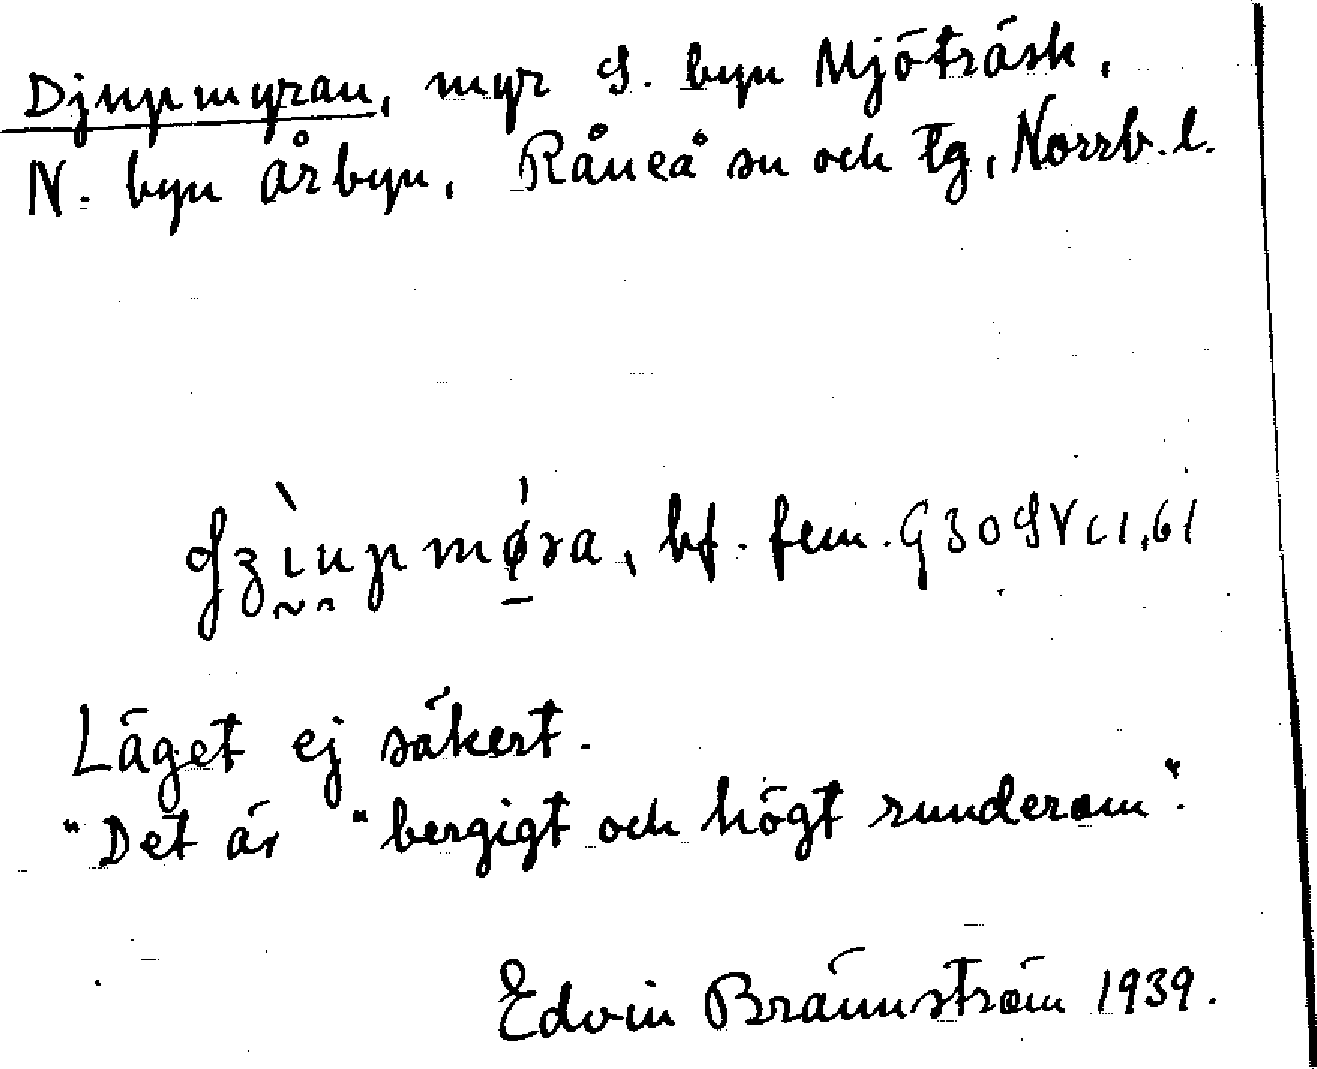 Djupmyran, myr S. byn Mjöträsk,
N. byn Årbyn, Råneå sn och tg, Norrb. l.
bf. fem. G30SVc1,61
Läget ej säkert.
"Det är "bergigt och högt runderom".
Edvin Brännström 1939.